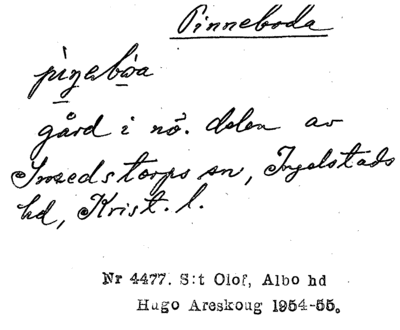 Pinneboda
gård i nö. delen av
Smedstorps sn, Ingelstads
hd, Krist. l.
Nr 4477. S:t Olof, Albo hd
Hugo Areskoug 1954-55.